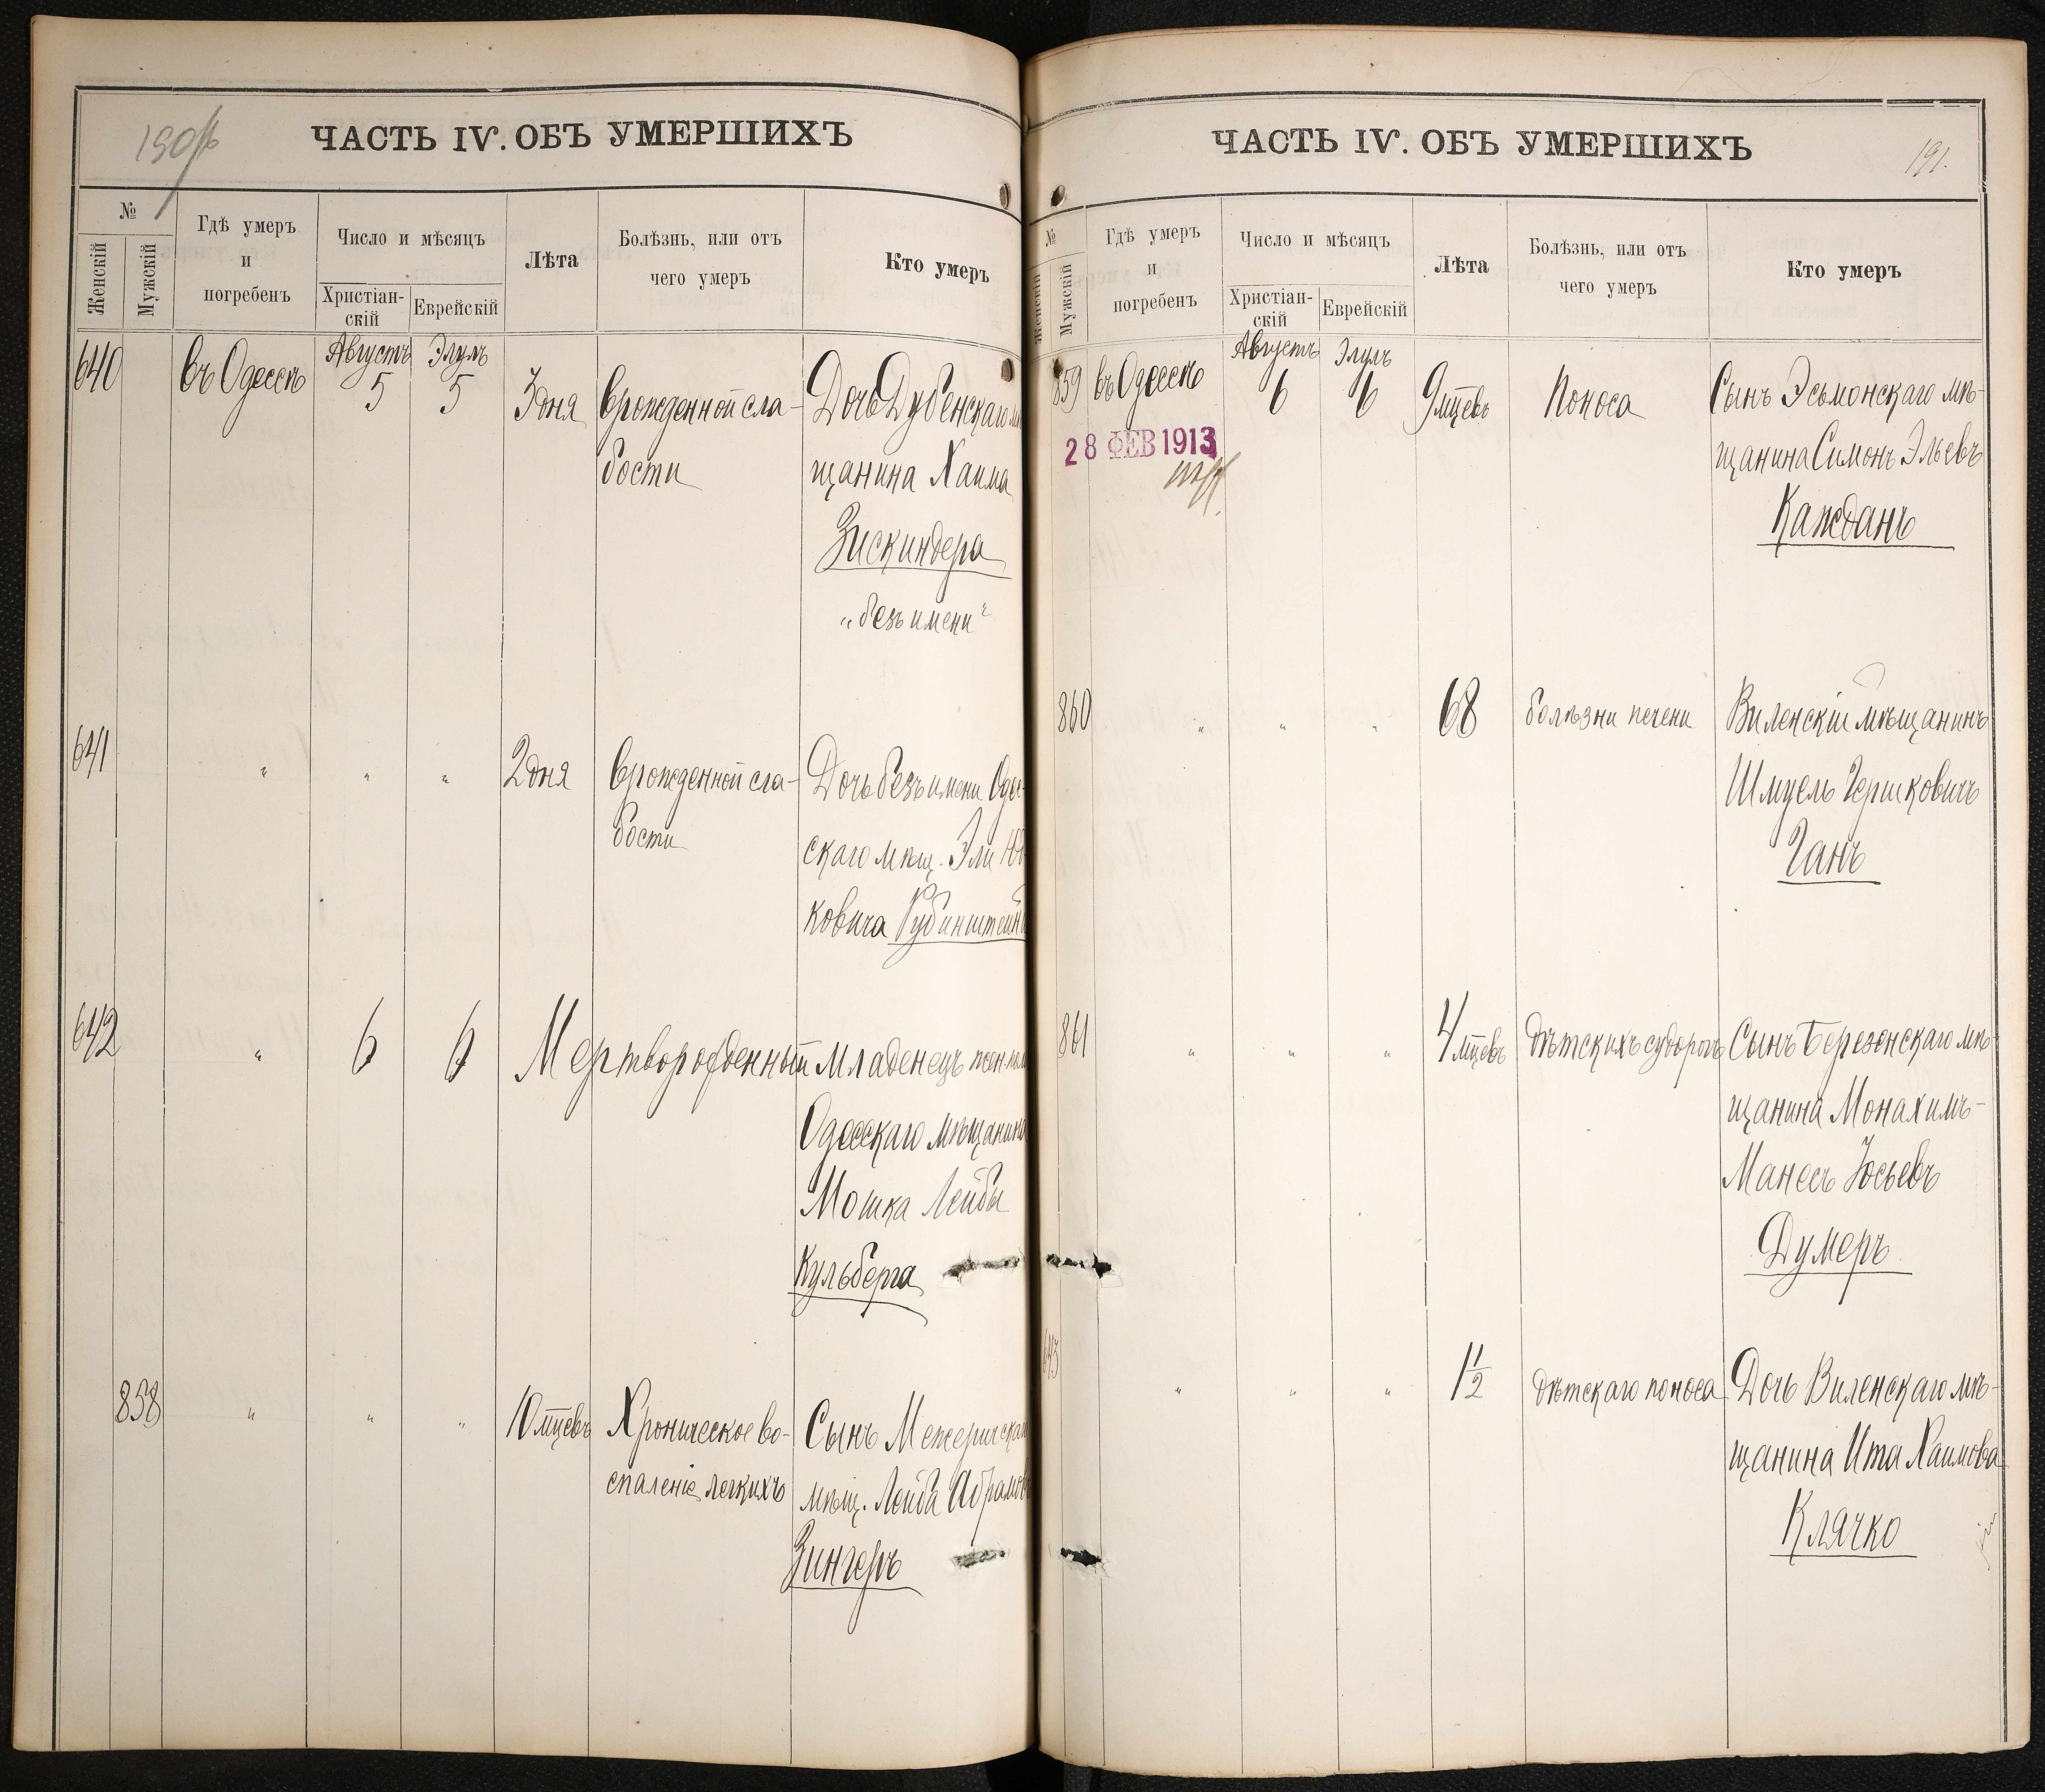 190 об
ЧАСТЬ IV. ОБЪ УМЕРШИХЪ
№
Женскій
Мужскій
Гдѣ умеръ
и
погребенъ
Число и мѣсяцъ
Христіан-
скій
Еврейскій
Лѣта
Болѣзнь, или отъ
чего умеръ
Кто умеръ
640
въ Одессѣ
Августъ
5
Элулъ
5
3 дня
Врожденной сла-
бости
Дочь Дубенскаго мѣ
щанина Хаима
Зискиндера
„безъ имени"
641
" " "
2 дня
Врожденной сла-
бости
Дочь безъ имени Одес-
скаго мѣщ. Эли
ковича Рубинштейна
642
"
6
6
Мертворожденный
Младенецъ жен. пола
Одесскаго мѣщанина
Мошка Лейбы
Кульберга
858
" " "
10 мцевъ
Хроническое во-
спаленіе легкихъ
Сынъ Межеричскаго
мѣщ. Лейба Абрамовъ
Зингеръ
ЧАСТЬ IV. ОБЪ УМЕРШИХЪ
191.
№
Женскій
Мужскій
Гдѣ умеръ
и
погребенъ
Число и мѣсяцъ
Христіан-
скій
Еврейскій
Лѣта
Болѣзнь, или отъ
чего умеръ
Кто умеръ
859
въ Одессѣ
28 ФЕВ 1913
Августъ
6
Элулъ
6
9 мцевъ
Поноса
Сынъ Эсьмонскаго мѣ-
щанина Симонъ Эльевъ
Кажданъ
860
" " "
68
болѣзни печени
Виленскій мѣщанинъ
Шмуель Гершковичъ
Ганъ
861
" " "
4 мцевъ
дѣтскихъ судорогъ
Сынъ Березенскаго мѣ-
щанина Монахимъ-
Манесъ Іосьевъ
Думеръ
643
" " "
1 1/2
дѣтскаго поноса
Дочь Виленскаго мѣ-
щанина Ита Хаимова
Клячко